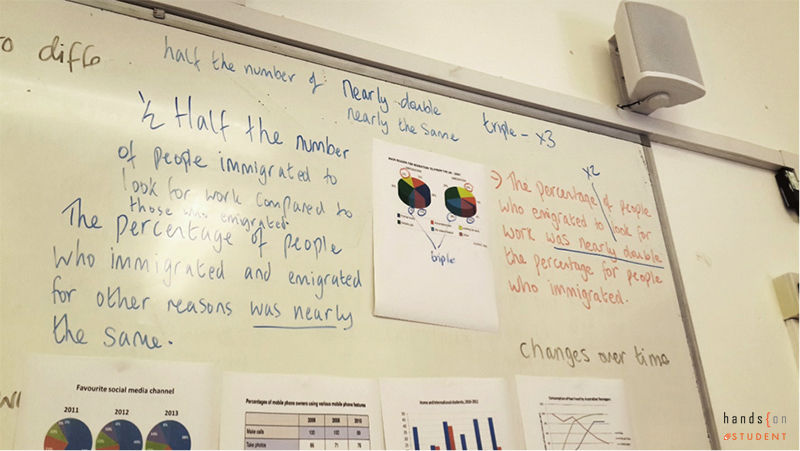 to diffe
half the number of nearly double
nearly the same
triple - x3
½ Half the number
of people immigrated to
look for work compared to
those who emigrated.
The percentage of people
who immigrated and emigrated
for other reasons was nearly
the same.
triple
x2
→ The percentage of people
who emigrated to look for
work was nearly double
the percentage for people
who immigrated.
changes over time
Favourite social media channel
2011 2012 2013
Percentages of mobile phone owners using various mobile phone features
2006 2008 2010
Make calls 100 100 99
Take photos 66 71 76
Home and International students, 2010-2012
hands{on
STUDENT